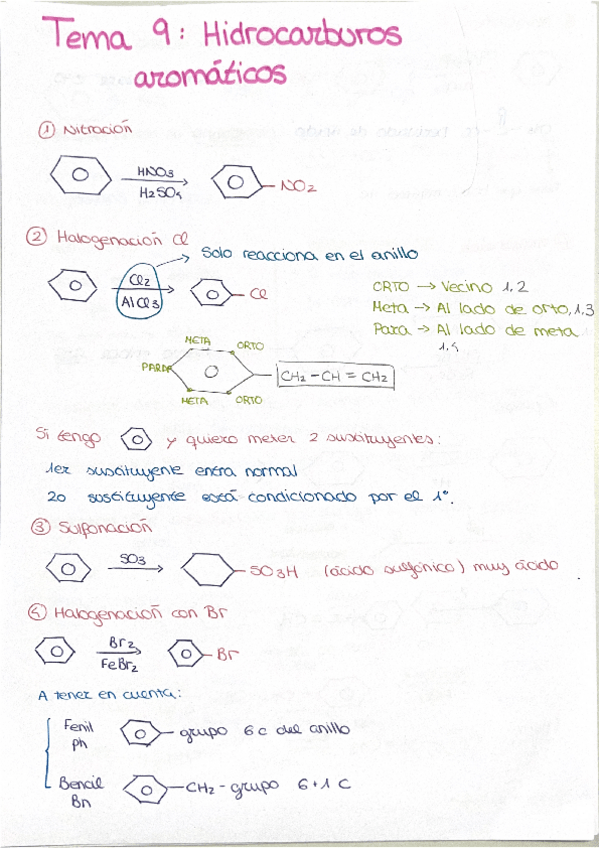 Tema 9: Hidrocarburos
aromáticos
① Nitración
HNO3
H2SO4
NO2
② Halogenación Cl
Solo reacciona en el anillo
Cl2
AlCl3
Cl
ORTO → Vecino 1,2
Meta → Al lado de orto, 1,3
Para → Al lado de meta
1,4
META
ORTO
PARA
CH2 - CH = CH2
META
ORTO
Si tengo y quiero meter 2 sustituyentes:
1er sustituyente entra normal
2o sustituyente está condicionado por el 1º.
③ Sulfonación
SO3
SO3H (ácido sulfónico) muy ácido
④ Halogenación con Br
Br2
FeBr2
Br
A tener en cuenta:
Fenil
Ph
grupo 6c del anillo
Bencil
Bn
CH2 - grupo 6+1 C